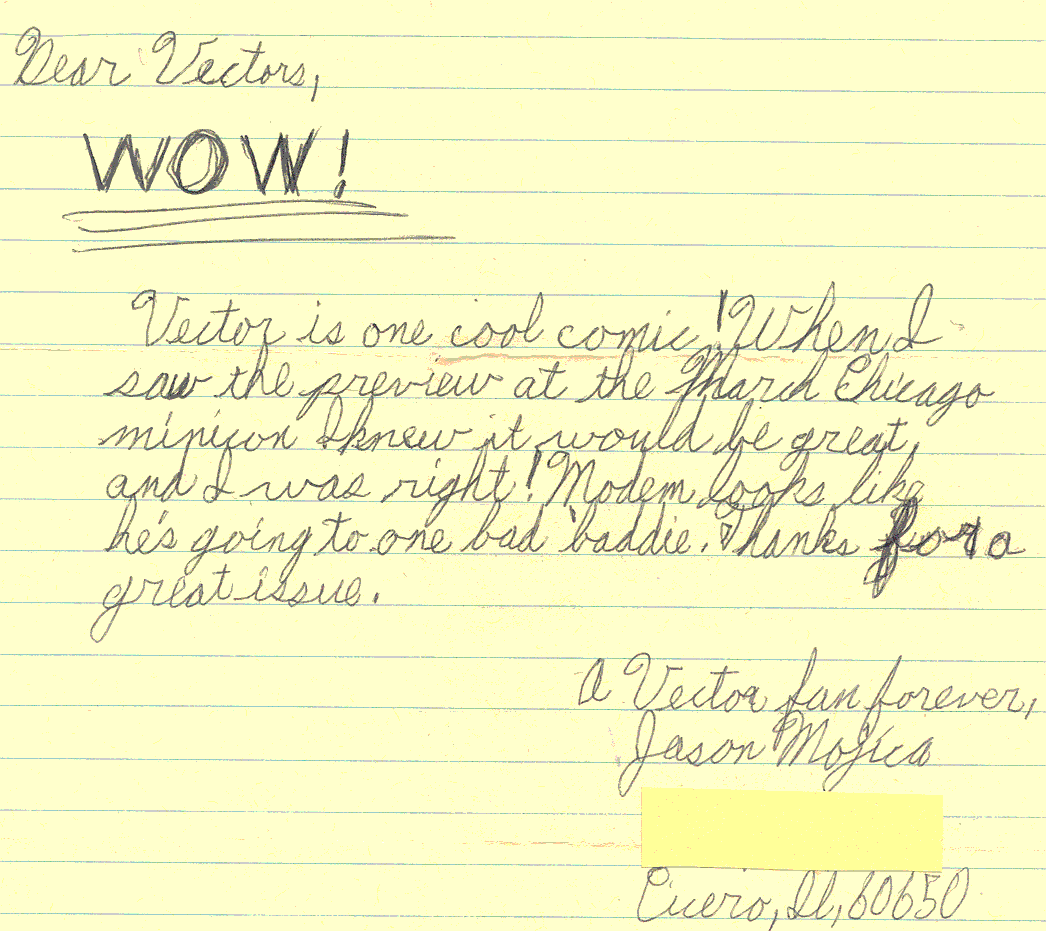 Dear Vectors,
WOW!
Vector is one cool comic! When I
saw the preview at the March Chicago
minicon I knew it would be great,
and I was right! Modem looks like
he's going to one bad baddie. Thanks for a
great issue.
A Vector fan forever,
Jason Mojica
Cicero, Il, 60650